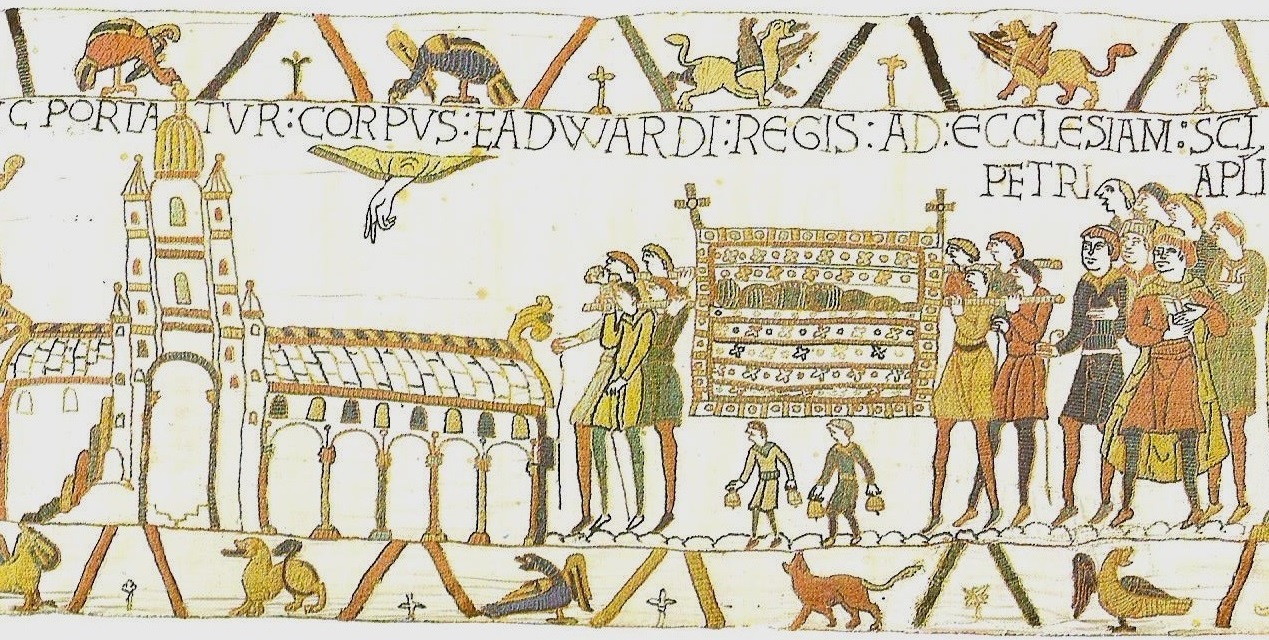 C PORTATVR : CORPVS : EADWARDI : REGIS : AD : ECCLESIAM : SCI
PETRI APLI